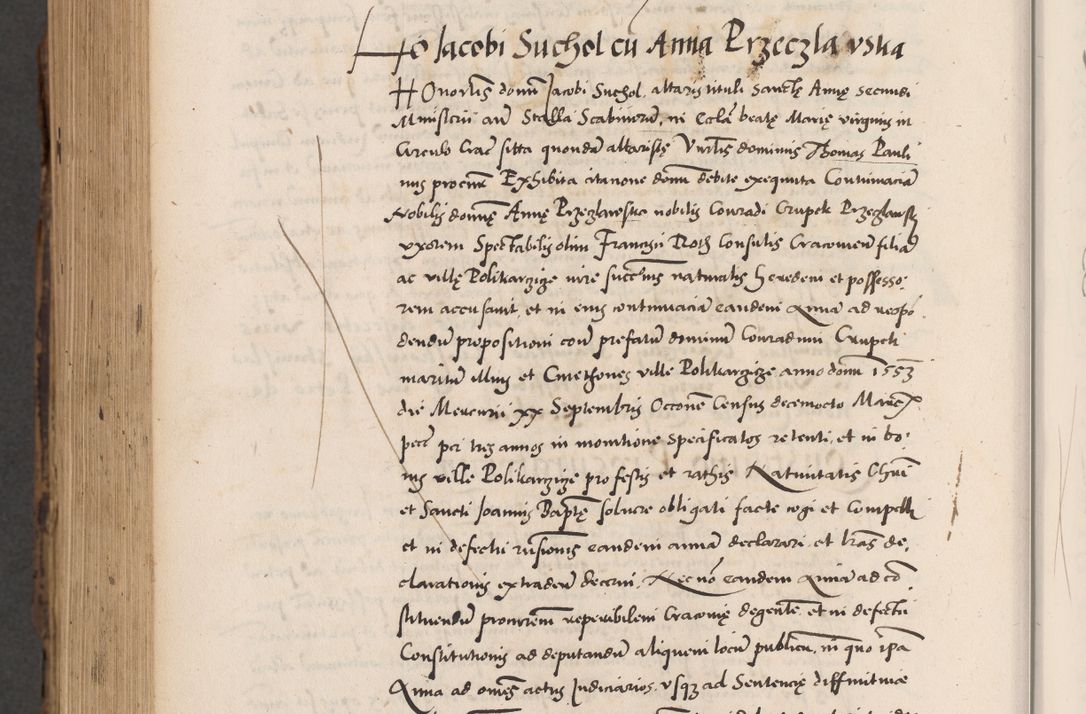 Ho Jacobi Suchol cu Anna Przeczlawska
HOnorabilis domini Jacobi Suchol, altaris tituli Sanctę Annę secundi
Ministerii aut Stalla Scabinorum, in Eccła beatę Marię virginis in
Circulo Crac sitta quondā altaristę Vnrlis dominus Thomas Pauli
nus procurator Exhibita citatione domi debite exequuta Contumaciā
Nobilis dominę Annę Przeczlawske nobilis Conradi Crupek Przeczlawsky
vxorem Spectabilis olim Francisci Roth Consulis Cracovien filiā
ac villę Polikarczize iure successivis naturalis heredem et possesso:
rem accusavit, et in eius contumaciā eandem Annā ad respō
dendum propositioni contra prefatum dominum Conradum Crupek
maritum illius et Cmethones ville Polikarczize anno domi 1553
die Mercurii xx Septembris Occōne Census decemocto Marc
pecc per tres annos in monitione specificatos retenti, et in bo:
nis ville Polikarczize pro festis et rathis Nativitatis Christi
et Sancti Joannis Baptę solvere obligati facte cogi et compelli
et in defectu rūsionis eandem annā declarari et lras de:
clarationis extradend decerni. Necnō eandem Annā ad cō
stituendū procurem reperibilem Cracovię degentē, et in defectu
Constitutionis ad deputandū aliquem locū publicū, in quo ipā
Anna ad omēs actus Judiciarios, vsq3 ad Sentencię diffinitivae